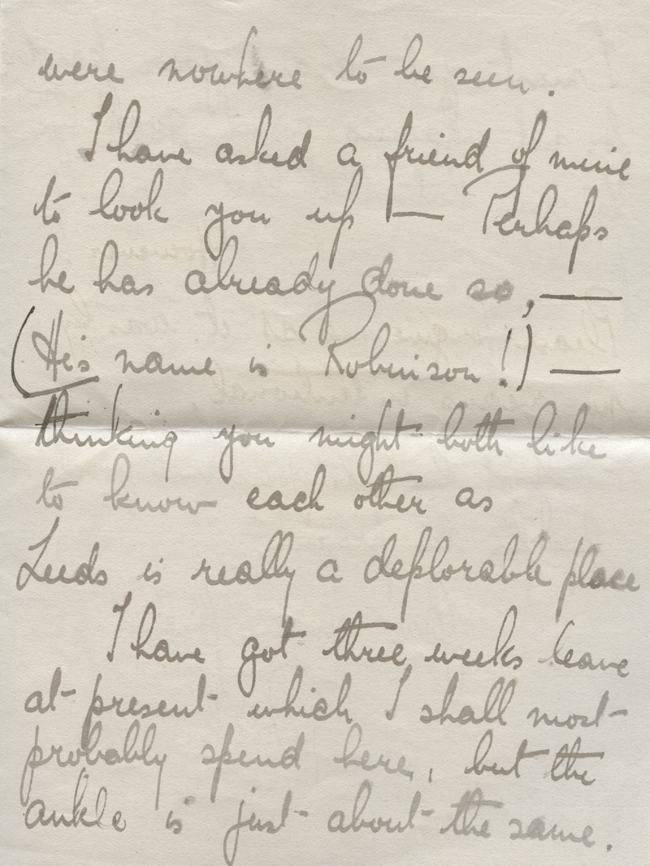 were nowhere to be seen.
I have asked a friend of mine
to look you up — Perhaps
he has already done so, —
(His name is Robinson!) —
thinking you might both like
to know each other as
Leeds is really a deplorable place
I have got three weeks leave
at present which I shall most
probably spend here, but the
ankle is just about the same.